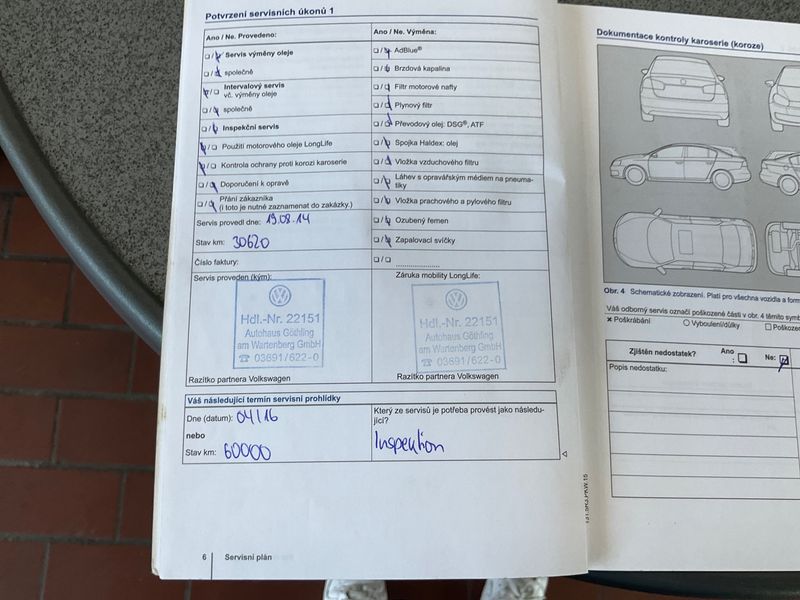 Potvrzení servisních úkonů 1
Ano / Ne. Provedeno:
Servis výměny oleje
společně
Intervalový servis
vč. výměny oleje
společně
Inspekční servis
Použití motorového oleje LongLife
Kontrola ochrany proti korozi karoserie
Doporučení k opravě
Přání zákazníka
(i toto je nutné zaznamenat do zakázky.)
Servis provedl dne: 19.08.14
Stav km: 30620
Číslo faktury:
Servis proveden (kým):
Hdl.-Nr. 22151
Autohaus Göthling
am Wartenberg GmbH
☎ 03691/622-0
Razítko partnera Volkswagen
Ano / Ne. Výměna:
AdBlue®
Brzdová kapalina
Filtr motorové nafty
Plynový filtr
Převodový olej: DSG®, ATF
Spojka Haldex: olej
Vložka vzduchového filtru
Láhev s opravářským médiem na pneuma-
tiky
Vložka prachového a pylového filtru
Ozubený řemen
Zapalovací svíčky
Záruka mobility LongLife:
Hdl.-Nr. 22151
Autohaus Göthling
am Wartenberg GmbH
☎ 03691/622-0
Razítko partnera Volkswagen
Váš následující termín servisní prohlídky
Dne (datum): 04/16
nebo
Stav km: 60000
Který ze servisů je potřeba provést jako následu-
jící?
Inspektion
6 Servisní plán
Dokumentace kontroly karoserie (koroze)
Obr. 4 Schematické zobrazení. Platí pro všechna vozidla a form
Váš odborný servis označí poškozené části v obr. 4 těmito symb
Poškrábání Vyboulení/důlky Poškoze
Zjištěn nedostatek? Ano : Ne:
Popis nedostatku: